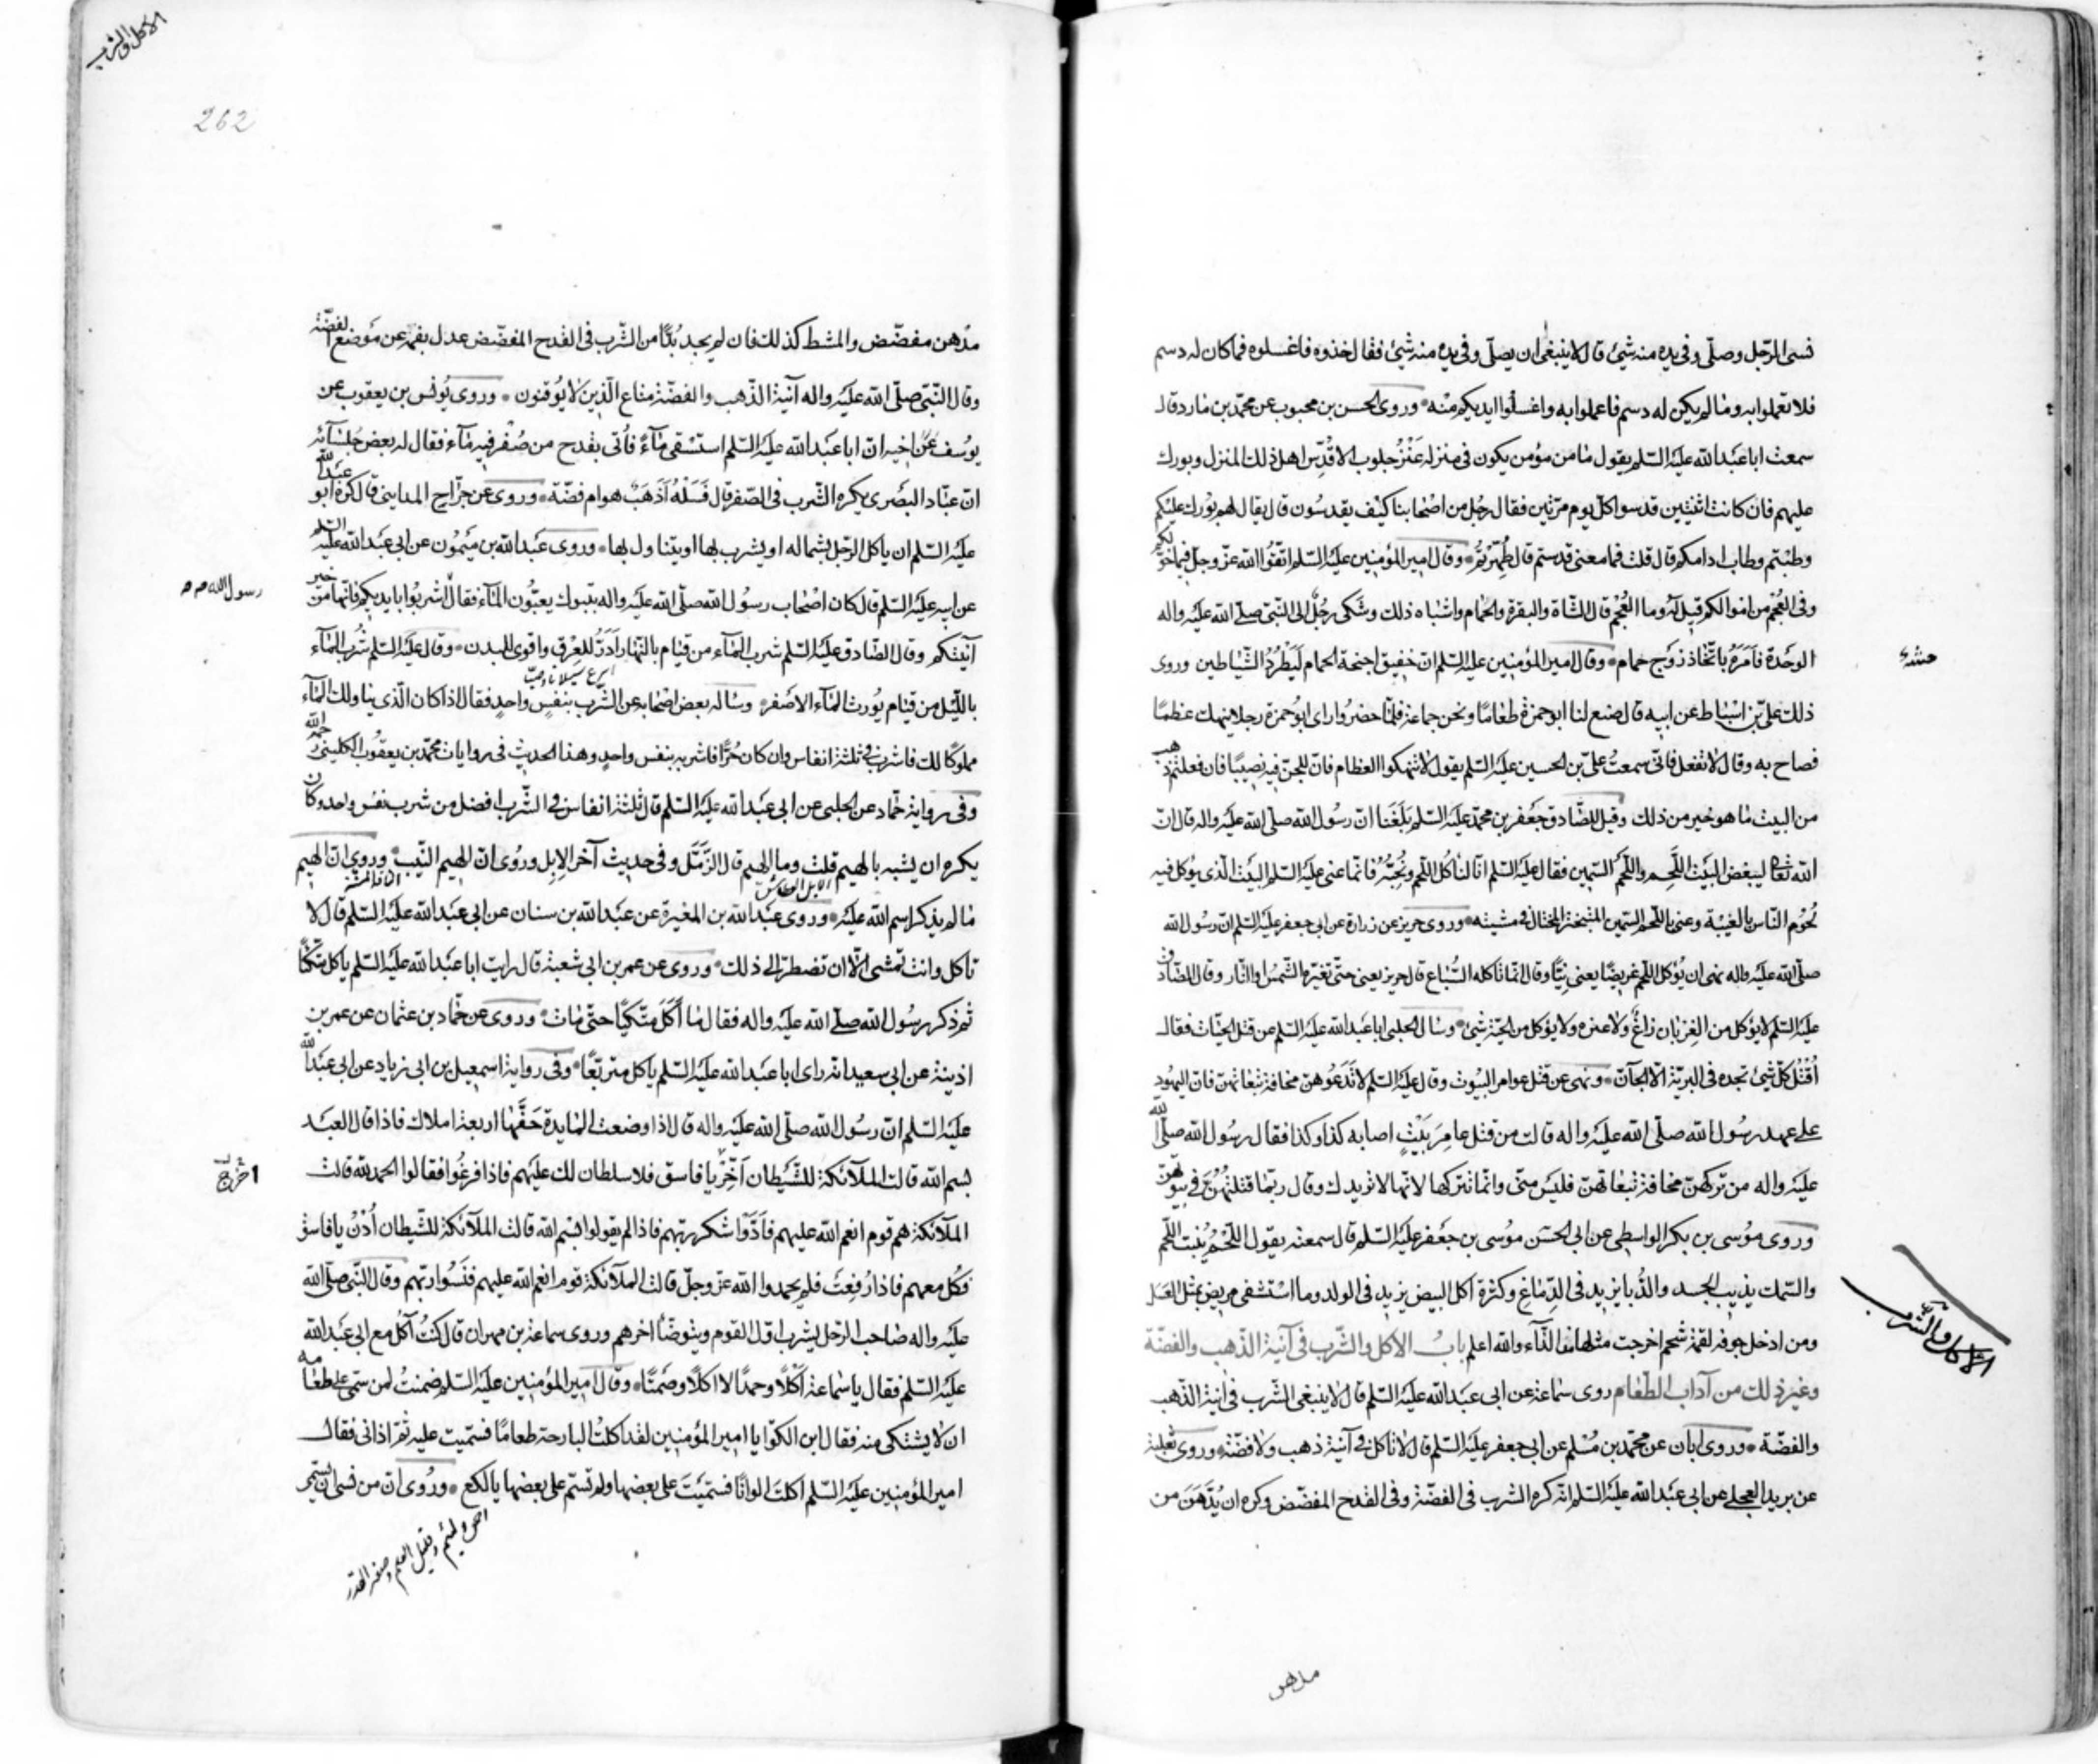 فنسى الرّجل وصلّى وفي يده منه شيئ قال لا ينبغى ان يصلّى وفي يده منه شيئ فقال خذوه فاغسلوه فما كان له دسم
فلا تعملوا به وما لم يكن له دسم فاعملوا به واغسلوا ايديكم منه وروى الحسن بن محبوب عن محمّد بن مارد قال
سمعت ابا عبد الله عليه السّلم يقول ما من مؤمن يكون في منزله عنز حلوب الا قدّس اهل ذلك المنزل وبورك
عليهم فان كانت اثنتين قدسوا كلّ يوم مرّتين فقال رجل من اصحابنا كيف يقدسون قال يقال لهم بورك عليكم
وطبتم وطاب ادامكم قال قلت فما معنى قدستم قال طهّرتم وقال امير المؤمنين عليه السّلم اتقوا الله عزّ وجلّ فيما خوّلكم
وفى العجم من اموالكم قيل له وما العجم قال الشّاة والبقرة والحمام واشباه ذلك وشكى رجل الى النّبىّ صلّى الله عليه واله
الوحدة فامره باتّخاذ زوج حمام وقال امير المؤمنين عليه السّلم انّ خفيق اجنحة الحمام ليطرد الشّياطين وروى
ذلك علىّ بن اسباط عن ابيه قال صنع لنا ابو حمزة طعامًا ونحن جماعة فلمّا حضروا راى ابو حمزة رجلا ينهك عظمًا
فصاح به وقال لا تفعل فانّى سمعت علىّ بن الحسين عليه السّلم يقول لا تنهكوا العظام فانّ للجنّ فيه نصيبًا فان فعلتم ذهب
من البيت ما هو خير من ذلك وقيل للصّادق جعفر بن محمّد عليه السّلم بلغنا ان رسول الله صلّى الله عليه واله قال انّ
الله تعالى ليبغض البيت اللّحم واللّحم السّمين فقال عليه السّلم انّا لنأكل اللّحم ونحبّه فانّما عنى عليه السّلم البيت الّذى يؤكل فيه
لحوم النّاس بالغيبة وعنى باللّحم السّمين المتبختر المختال في مشيته وروى حريز عن زرارة عن ابى جعفر عليه السّلم ان رسول الله
صلّى الله عليه واله نهى ان يؤكل اللّحم غريضًا يعنى نيًّا وقال انّما تأكله السّباع قال حريز يعنى حتّى تغيّره الشّمس او النّار وقال الصّادق
عليه السّلم لا يؤكل من الغربان زاغ ولا غيره ولا يؤكل من الحيّة شيئ وسال الحلبى ابا عبد الله عليه السّلم عن قتل الحيّات فقال
اقتل كلّ شيئ تجده في البريّة الّا الجانّ ونهى عن قتل عوامر البيوت وقال عليه السّلم لا تدعوهنّ مخافة تبعاتهنّ فانّ اليهود
على عهد رسول الله صلّى الله عليه واله قالت من قتل عامر بيت اصابه كذا وكذا فقال رسول الله صلّى الله
عليه واله من تركهنّ مخافة تبعاتهنّ فليس منّى وانّما نتركها لانّها لا تريدك وقال ربّما قتلتهنّ في بيوتهنّ
وروى موسى بن بكر الواسطى عن ابى الحسن موسى بن جعفر عليه السّلم قال سمعته يقول اللّحم ينبت اللّحم
والسّمك يذيب الجسد والدّبا يزيد في الدّماغ وكثرة اكل البيض يزيد في الولد وما استشفى مريض بمثل العسل
ومن ادخل جوفه لقمة شحم اخرجت مثلها من الدّآء والله اعلم باب الاكل والشّرب في آنية الذّهب والفضّة
وغير ذلك من آداب الطّعام روى سماعة عن ابى عبد الله عليه السّلم قال لا ينبغى الشّرب في آنية الذّهب
والفضّة وروى ابان عن محمّد بن مسلم عن ابى جعفر عليه السّلم قال لا تأكل في آنية ذهب ولا فضّة وروى ثعلبة
عن بريد العجلى عن ابى عبد الله عليه السّلم انّه كره الشرب في الفضّة وفى القدح المفضّض وكره ان يدّهن من
الاكل والشرب
مدهن
الاكل والشرب
262
مدهن مفضّض والمشط كذلك فان لم يجد بدًّا من الشّرب في القدح المفضّض عدل بفمه عن موضع الفضّة
وقال النّبىّ صلّى الله عليه واله آنية الذّهب والفضّة متاع الّذين لا يوقنون وروى يونس بن يعقوب عن
يوسف عن اخيه ان ابا عبد الله عليه السّلم استسقى مآءً فأتى بقدح من صفر فيه مآء فقال له بعض جلسآئه
انّ عبّاد البصرى يكره الشّرب في الصّفر قال فسله أذهب هو ام فضّة وروى عن جرّاح المداينى قال كره ابو عبد الله
عليه السّلم ان يأكل الرّجل بشماله او يشرب بها او يتناول بها وروى عبد الله بن ميمون عن ابى عبد الله عليه السّلم
عن ابيه عليه السّلم قال كان اصحاب رسول الله صلّى الله عليه واله بتبوك يعبّون المآء فقال اشربوا بايديكم فانّها من خير
رسول الله ص
آنيتكم وقال الصّادق عليه السّلم شرب المآء من قيام بالنّهار ادرّ للعرق واقوى للبدن وقال عليه السّلم شرب المآء
باللّيل من قيام يورث المآء الاصفر وساله بعض اصحابه عن الشّرب بنفس واحد فقال اذا كان الّذى يناولك المآء
مملوكًا لك فاشرب في ثلثة انفاس وان كان حرًّا فاشربه بنفس واحد وهذا الحديث في روايات محمّد بن يعقوب الكلينى رحمه الله
وفى رواية حمّاد عن الحلبى عن ابى عبد الله عليه السّلم قال ثلثة انفاس في الشّرب افضل من شرب نفس واحد وكان
يكره ان يشبه بالهيم قلت وما الهيم قال الزّمل وفى حديث آخر الابل وروى انّ الهيم النّيب وروى انّ الهيم
ما لم يذكر اسم الله عليه وروى عبد الله بن المغيرة عن عبد الله بن سنان عن ابى عبد الله عليه السّلم قال لا
تأكل وانت تمشى الّا ان تضطرّ الى ذلك وروى عن عمر بن ابى شعبة قال رايت ابا عبد الله عليه السّلم يأكل متّكئًا
ثم ذكر رسول الله صلّى الله عليه واله فقال ما أكل متّكئًا حتّى مات وروى عن حمّاد بن عثمان عن عمر بن
اذينة عن ابى سعيد انّه راى ابا عبد الله عليه السّلم يأكل متربّعًا وفى رواية اسمعيل بن ابى زياد عن ابى عبد الله
عليه السّلم ان رسول الله صلّى الله عليه واله قال اذا وضعت المايدة حفّها اربعة املاك فاذا قال العبد
بسم الله قالت الملآئكة للشّيطان اخرج يا فاسق فلا سلطان لك عليهم فاذا فرغوا فقالوا الحمد لله قالت
اخرج
الملآئكة هم قوم انعم الله عليهم فأدّوا شكر ربّهم فاذا لم يقولوا بسم الله قالت الملآئكة للشّيطان أدن يا فاسق
فكل معهم فاذا رفعت فلم يحمدوا الله عزّ وجلّ قالت الملآئكة قوم انعم الله عليهم فنسوا ربّهم وقال النّبى صلّى الله
عليه واله صاحب الرّحل يشرب اوّل القوم ويتوضّأ اخرهم وروى سماعة بن مهران قال كنت آكل مع ابى عبد الله
عليه السّلم فقال يا سماعة اكلًا وحمدًا لا اكلًا وصمتًا وقال امير المؤمنين عليه السّلم ضمنت لمن سمّى على طعامه
ان لا يشتكى منه فقال ابن الكوّا يا امير المؤمنين لقد اكلت البارحة طعامًا فسمّيت عليه ثمّ اذانى فقال
امير المؤمنين عليه السّلم اكلت الوانًا فسمّيت على بعضها ولم تسمّ على بعضها يا لكع وروى انّ من نسى ان يسمّى